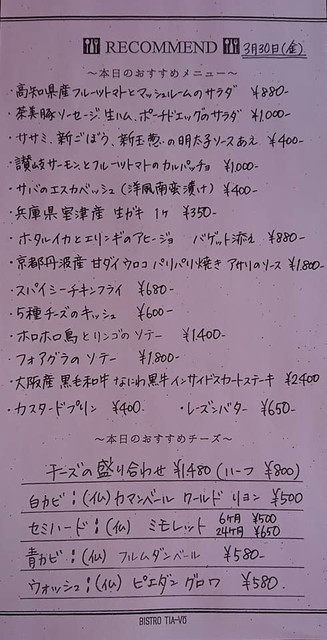 RECOMMEND 3月30日(金)
〜本日のおすすめメニュー〜
・高知県産フルーツトマトとマッシュルームのサラダ ¥880-
・茶美豚ソーセージ、生ハム、ポーチドエッグのサラダ ¥1,000-
・ササミ、新ごぼう、新玉葱の明太子ソースあえ ¥400-
・讃岐サーモンとフルーツトマトのカルパッチョ ¥1,000-
・サバのエスカベッシュ (洋風南蛮漬け) ¥400-
・兵庫県室津産 生ガキ 1ヶ ¥350-
・ホタルイカとエリンギのアヒージョ バゲット添え ¥880-
・京都丹波産 甘ダイウロコパリパリ焼き アサリのソース ¥1,800-
・スパイシーチキンフライ ¥680-
・5種チーズのキッシュ ¥600-
・ホロホロ鳥とリンゴのソテー ¥1400-
・フォアグラのソテー ¥1,800-
・大阪産 黒毛和牛 なにわ黒牛 インサイドスカートステーキ ¥2400
・カスタードプリン ¥400. ・レーズンバター ¥650-
〜本日のおすすめチーズ〜
チーズの盛り合わせ ¥1480 (ハーフ ¥800)
白カビ:(仏) カマンベール ワールド リヨン ¥500
セミハード:(仏) ミモレット 6ヶ月 ¥500
24ヶ月 ¥650
青カビ:(仏) フルムダンベール ¥580-
ウォッシュ:(仏) ピエダングロワ ¥580.
BISTRO TIA-VO